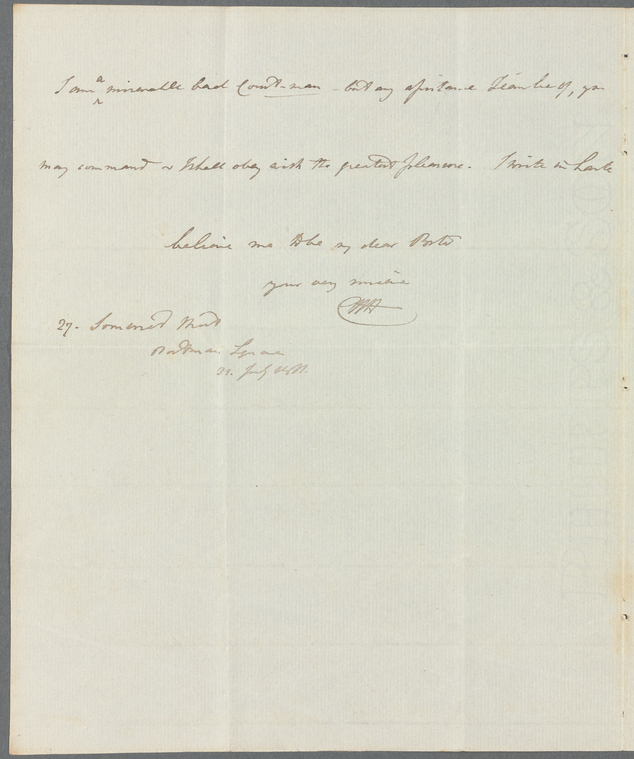 I am a miserable bad Court-man - but any assistance I can be of, you
may command & I shall obey with the greatest pleasure. I write in haste
believe me to be my dear
your very
27. Somerset Street
Portman Square
21. July
PHIPPS & SON